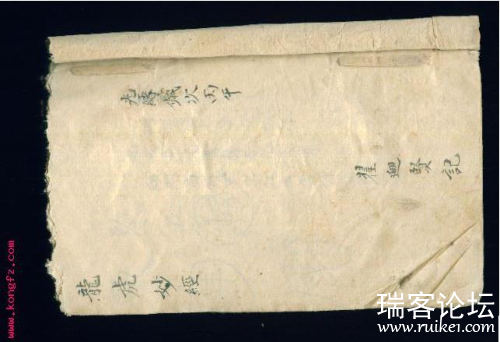 光緒歲次丙午
翟賢記
龍虎妙經
www.kongfz.com
瑞客论坛
www.ruike1.com